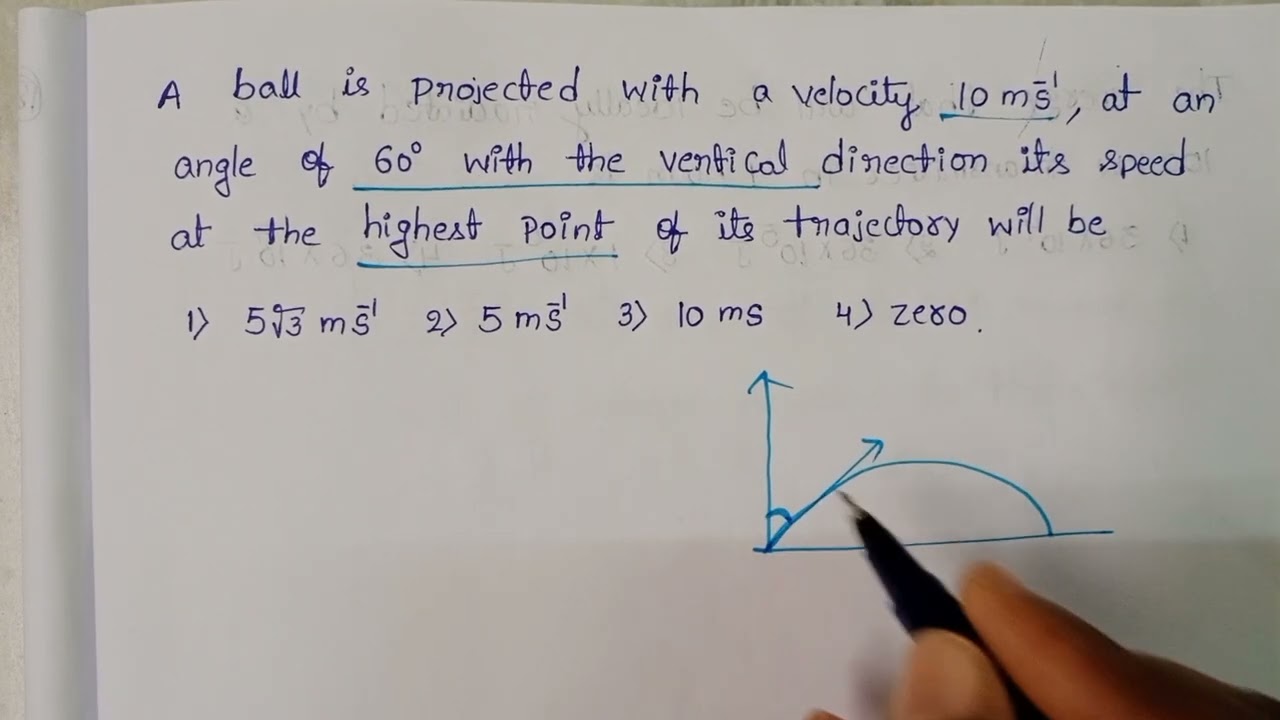 A ball is projected with a velocity 10 ms⁻¹, at an
angle of 60° with the vertical direction its speed
at the highest point of its trajectory will be
1) 5√3 ms⁻¹ 2) 5 ms⁻¹ 3) 10 ms 4) zero.